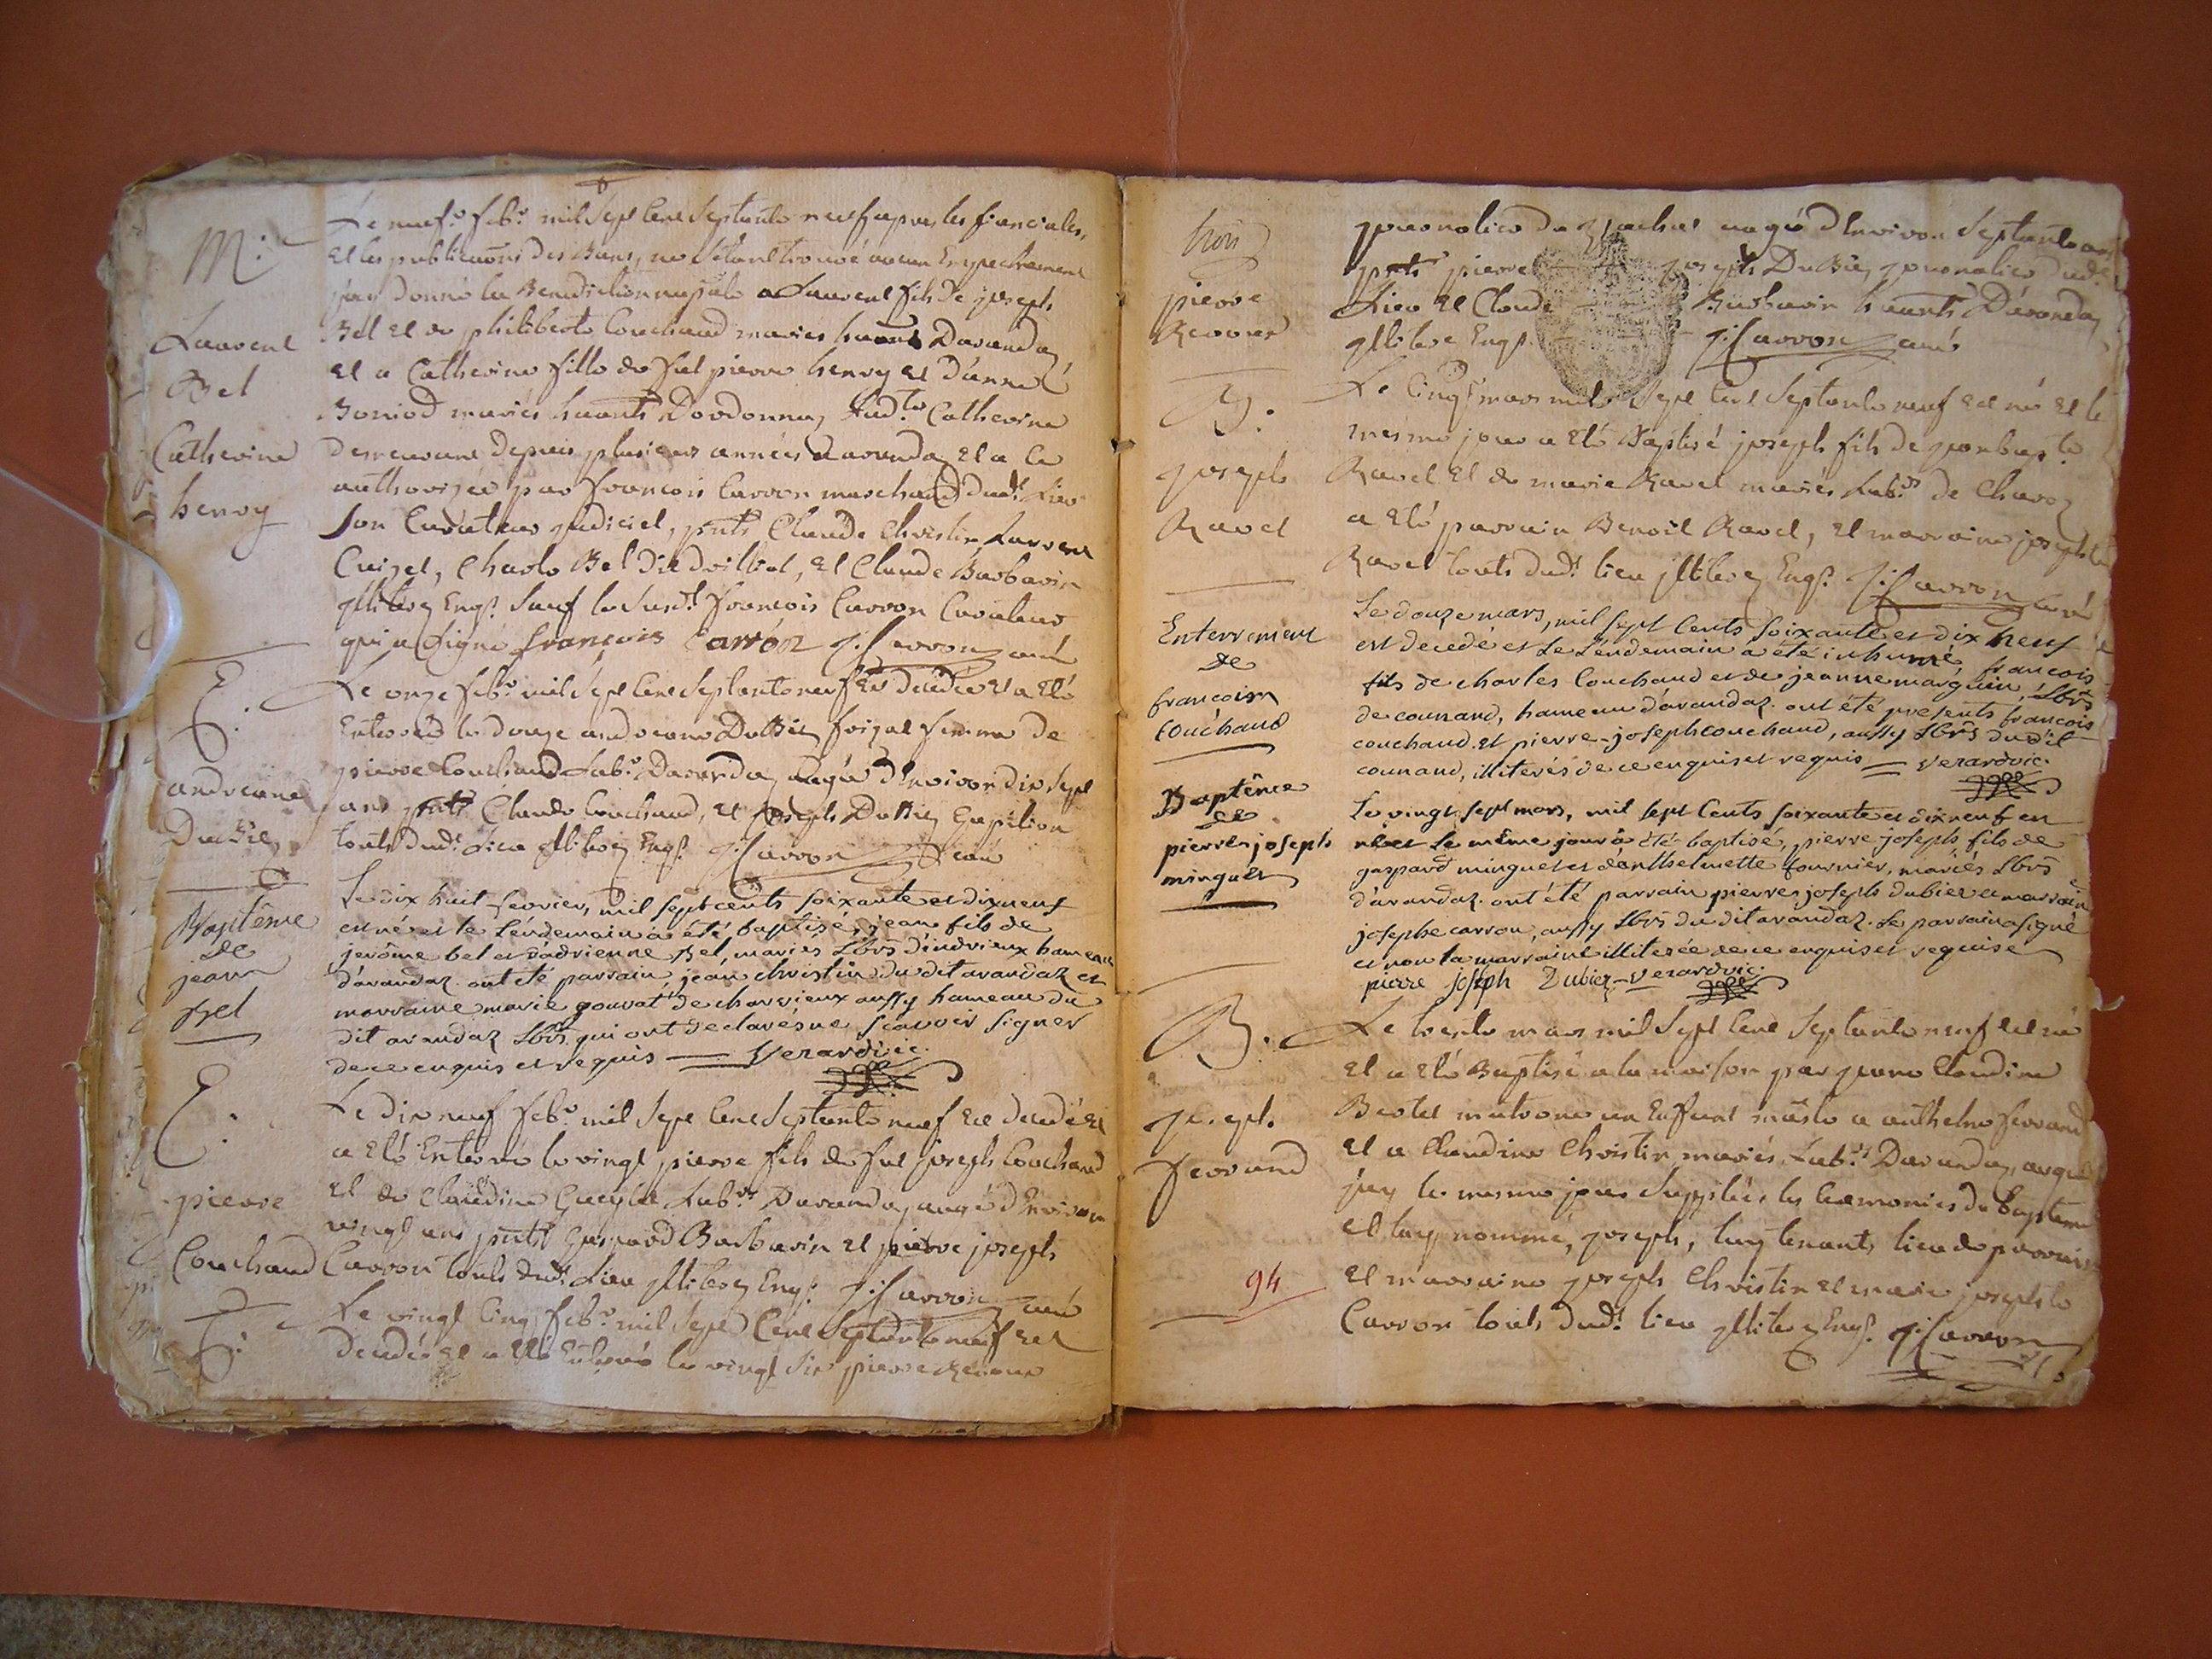 M:
Laurent
Bel
Catherine
henry
Le neuf febr. mil sept cent septante neuf apres les fianciales,
et les publications des Bans, ne s'etant trouvé aucun Empechement
j'ay donné la Benediction nuptiale a Laurent fils de joseph
Bel et de philiberte Couchaud mariés Davanday
et a Catherine fille de feu pierre henry et d'anne
mariés Dordonnaz lad.te Catherine
demeurant depuis plusieurs années a arandaz et a ce
authorizée par francois Carron marchand dud.t Lieu
son Curateur judiciel, pnts Claude Christin Laurent
Cuizel, Charle Bel dit et Claude Barbarin
illiterez Enq.s sauf le susd.t francois Carron Curateur
qui a signé françois Carrón J: Carron curé
E:
andreanne
Dubiez
Le onze febr. mil sept cent septante neuf est decedée et a eté
Enterrée le douze andreanne Dubiez femme de
pierre Couchaud Lab.r Darandaz aagée d'Environ dix sept
ans pnts Claude Couchaud, et joseph Dubiez
touts dud.t Lieu illiterez Enq.s J: Carron curé
Baptême
de
jean
bel
Le dix huit fevrier, mil sept cents soixante et dixneuf
est né et le lendemain a été baptisé, jean fils de
jerôme bel et d'adrienne bel, mariés Lbrs d'indrieux hameau
d'arandaz. ont été parrain jean christin du dit arandaz et
marraine marie gouvat de charvieux aussy hameau du
dit arandaz Lbrs, qui ont declarés ne scavoir signer
de ce enquis et requis — Verard vic.
E:
pierre
Couchaud
Le dix neuf febr. mil sept cent septante neuf est decedé et
a eté Enterré le vingt pierre fils de feu joseph Couchaud
et de Claudine Lab.rs Darandaz, aagé d'Environ
vingt ans pnts gaspard Barbarin et pierre joseph
Carron touts dud.t Lieu illiterez Enq.s J: Carron curé
E:
Le vingt Cinq febr. mil sept Cent septante neuf est
decedé et a eté Enterré le vingt six pierre
pierre
journalier de aagé d'Environ septante ans
pnts pierre joseph Dubiez journalier dud.t
Lieu et Claude Barbarin Darandaz
illiterez Enq.s J: Carron curé
B:
joseph
Ravet
Le Cinq mars mil sept cent septante neuf est né et le
mesme jour a eté Baptisé joseph fils de jeanbap.te
Ravet et de marie Ravet mariés Lab.rs de
a eté parrain Benoit Ravet, et marraine josephte
Ravet touts dud.t lieu illiterez Enq.s J: Carron curé
Enterrement
de
francois
couchaud
Le douze mars, mil sept Cents soixante et dix neuf
est decedé et le Lendemain a été inhumé francois
fils de charles Couchaud et de jeanne marguin. Lbrs
de counand, hameau d'arandaz. ont été presents francois
couchaud. et pierre-joseph couchaud, aussy Lbrs dudit
counand, illiterés de ce enquis et requis — Verard vic.
Baptême
de
pierre joseph
minguet
Le vingt sept mars, mil sept Cents soixante et dixneuf est
né et le même jour a été baptisé, pierre joseph fils de
gaspard minguet et d'anthelmette fournier, mariés Lbrs
d'arandaz. ont été parrain pierre joseph dubiez et marraine
josephe carron, aussy Lbrs du dit arandaz. le parrain a signé
et non la marraine illiterée de ce enquise et requise
pierre joseph Dubiez — Verard vic.
B:
joseph
ferrand
Le trente mars mil sept cent septante neuf est né
et a eté Baptisé a la maison par jeanne Claudine
matrone un Enfant masle a anthelme ferrand
et a Claudine Christin mariés, Lab.rs Darandaz, auquel
j'ay le mesme jour supplée les ceremonies du baptesme
et l'ay nommé, joseph, luy tenants lieu de parrain
et marraine joseph Christin et marie josephte
Carron touts dud.t lieu illiterez Enq.s J: Carron
94